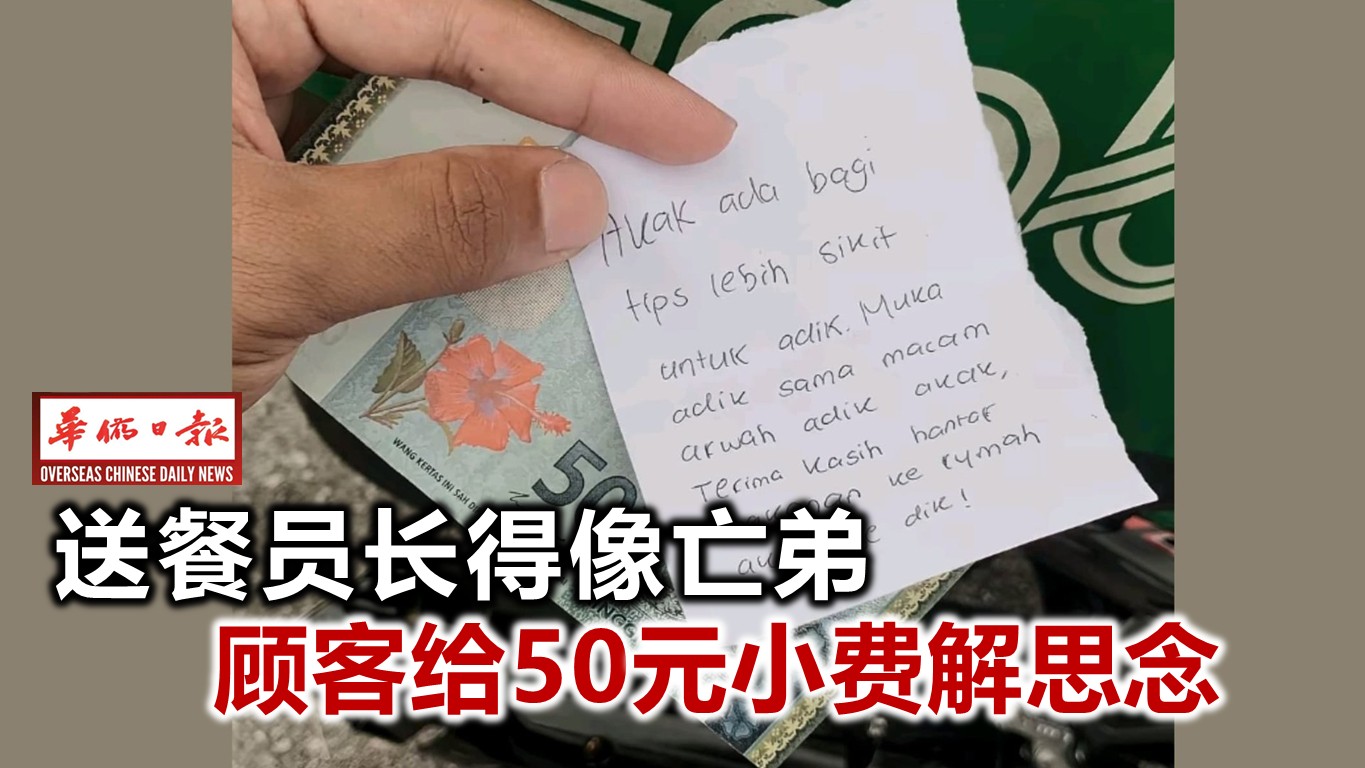 Akak ada bagi
tips lebih sikit
untuk adik. Muka
adik sama macam
arwah adik akak,
Terima kasih hantar
ke rumah
dik!
WANG KERTAS INI SAH D
50
NGG
華僑日報
OVERSEAS CHINESE DAILY NEWS
送餐员长得像亡弟
顾客给50元小费解思念